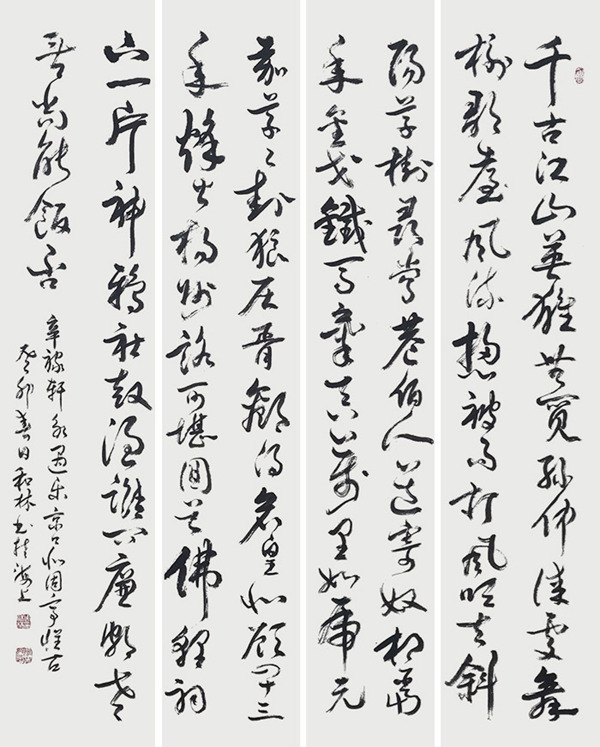 千古江山英雄無覓孫仲謀處舞
榭歌臺風流總被雨打風吹去斜
陽草樹尋常巷陌人道寄奴想當
年金戈鐵馬氣吞萬里如虎元
嘉草々封狼居胥贏得倉皇北顧四十三
年烽火揚州路可堪回首佛貍祠
下一片神鴉社鼓憑誰問廉頗老
矣尚能飯否
辛稼軒永遇樂京口北固亭懷古
癸卯春日和林書於海上